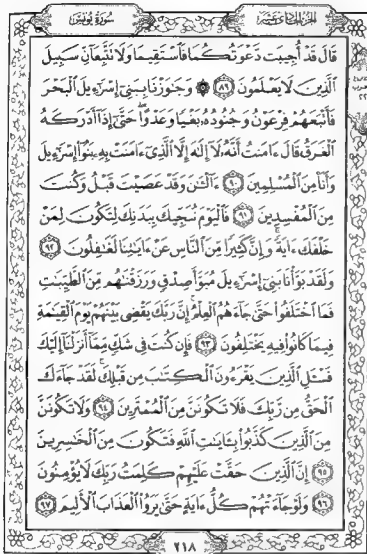 الجزء الحادي عشر
سورة يونس
قَالَ قَدْ أُجِيبَت دَّعْوَتُكُمَا فَٱسْتَقِيمَا وَلَا تَتَّبِعَآنِّ سَبِيلَ
ٱلَّذِينَ لَا يَعْلَمُونَ ٨٩ ۞ وَجَٰوَزْنَا بِبَنِىٓ إِسْرَٰٓءِيلَ ٱلْبَحْرَ
فَأَتْبَعَهُمْ فِرْعَوْنُ وَجُنُودُهُۥ بَغْيًا وَعَدْوًا ۖ حَتَّىٰٓ إِذَآ أَدْرَكَهُ
ٱلْغَرَقُ قَالَ ءَامَنتُ أَنَّهُۥ لَآ إِلَٰهَ إِلَّا ٱلَّذِىٓ ءَامَنَتْ بِهِۦ بَنُوٓا۟ إِسْرَٰٓءِيلَ
وَأَنَا۠ مِنَ ٱلْمُسْلِمِينَ ٩٠ ءَآلْـَٰٔنَ وَقَدْ عَصَيْتَ قَبْلُ وَكُنتَ
مِنَ ٱلْمُفْسِدِينَ ٩١ فَٱلْيَوْمَ نُنَجِّيكَ بِبَدَنِكَ لِتَكُونَ لِمَنْ
خَلْفَكَ ءَايَةً ۚ وَإِنَّ كَثِيرًا مِّنَ ٱلنَّاسِ عَنْ ءَايَٰتِنَا لَغَٰفِلُونَ ٩٢
وَلَقَدْ بَوَّأْنَا بَنِىٓ إِسْرَٰٓءِيلَ مُبَوَّأَ صِدْقٍ وَرَزَقْنَٰهُم مِّنَ ٱلطَّيِّبَٰتِ
فَمَا ٱخْتَلَفُوا۟ حَتَّىٰ جَآءَهُمُ ٱلْعِلْمُ ۚ إِنَّ رَبَّكَ يَقْضِى بَيْنَهُمْ يَوْمَ ٱلْقِيَٰمَةِ
فِيمَا كَانُوا۟ فِيهِ يَخْتَلِفُونَ ٩٣ فَإِن كُنتَ فِى شَكٍّ مِّمَّآ أَنزَلْنَآ إِلَيْكَ
فَسْـَٔلِ ٱلَّذِينَ يَقْرَءُونَ ٱلْكِتَٰبَ مِن قَبْلِكَ ۚ لَقَدْ جَآءَكَ
ٱلْحَقُّ مِن رَّبِّكَ فَلَا تَكُونَنَّ مِنَ ٱلْمُمْتَرِينَ ٩٤ وَلَا تَكُونَنَّ
مِنَ ٱلَّذِينَ كَذَّبُوا۟ بِـَٔايَٰتِ ٱللَّهِ فَتَكُونَ مِنَ ٱلْخَٰسِرِينَ
٩٥ إِنَّ ٱلَّذِينَ حَقَّتْ عَلَيْهِمْ كَلِمَتُ رَبِّكَ لَا يُؤْمِنُونَ
٩٦ وَلَوْ جَآءَتْهُمْ كُلُّ ءَايَةٍ حَتَّىٰ يَرَوُا۟ ٱلْعَذَابَ ٱلْأَلِيمَ ٩٧
٢١٨